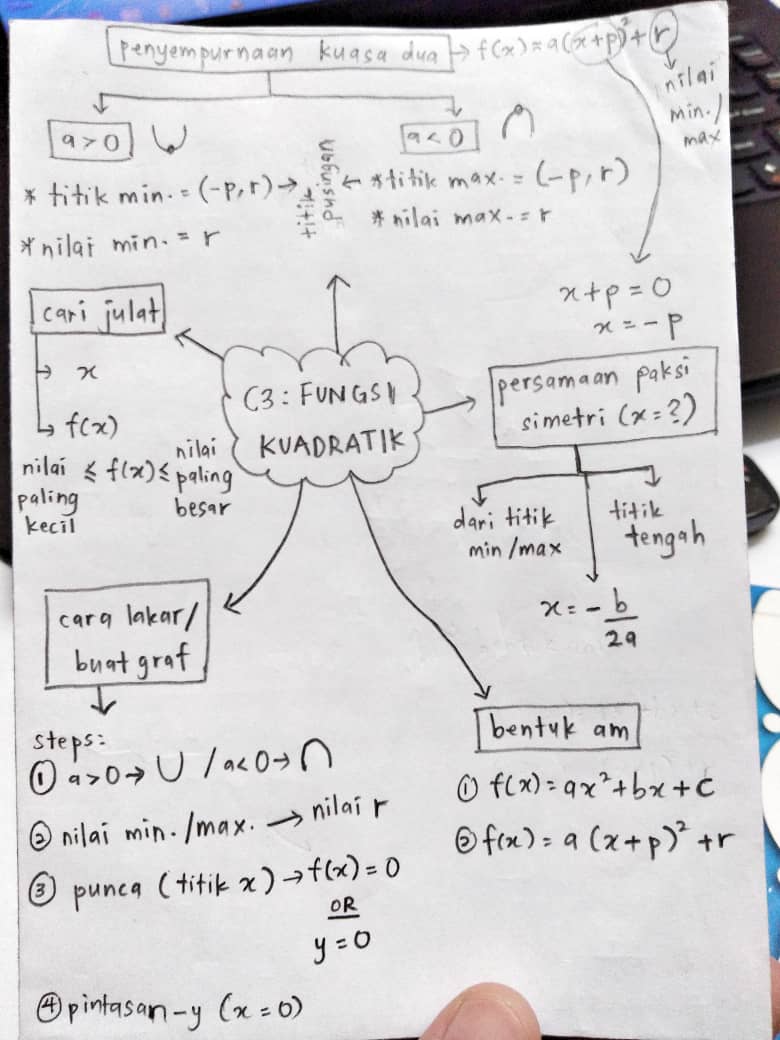 penyempurnaan kuasa dua → f(x) = a(x+p)² + r
nilai
min./
max
a > 0
a < 0
* titik min. = (-p, r) →
titik
pusingan
← * titik max. = (-p, r)
* nilai min. = r
* nilai max. = r
x + p = 0
x = - p
cari julat
→ x
→ f(x)
nilai paling kecil ≤ f(x) ≤ nilai paling besar
C3 : FUNGSI
KUADRATIK
persamaan paksi
simetri (x = ?)
dari titik
min/max
titik
tengah
x = - b/2a
cara lakar/
buat graf
steps:
① a > 0 → ∪ / a < 0 → ∩
② nilai min. /max. → nilai r
③ punca (titik x) → f(x) = 0
OR
y = 0
④ pintasan-y (x = 0)
bentuk am
① f(x) = ax² + bx + c
② f(x) = a (x + p)² + r